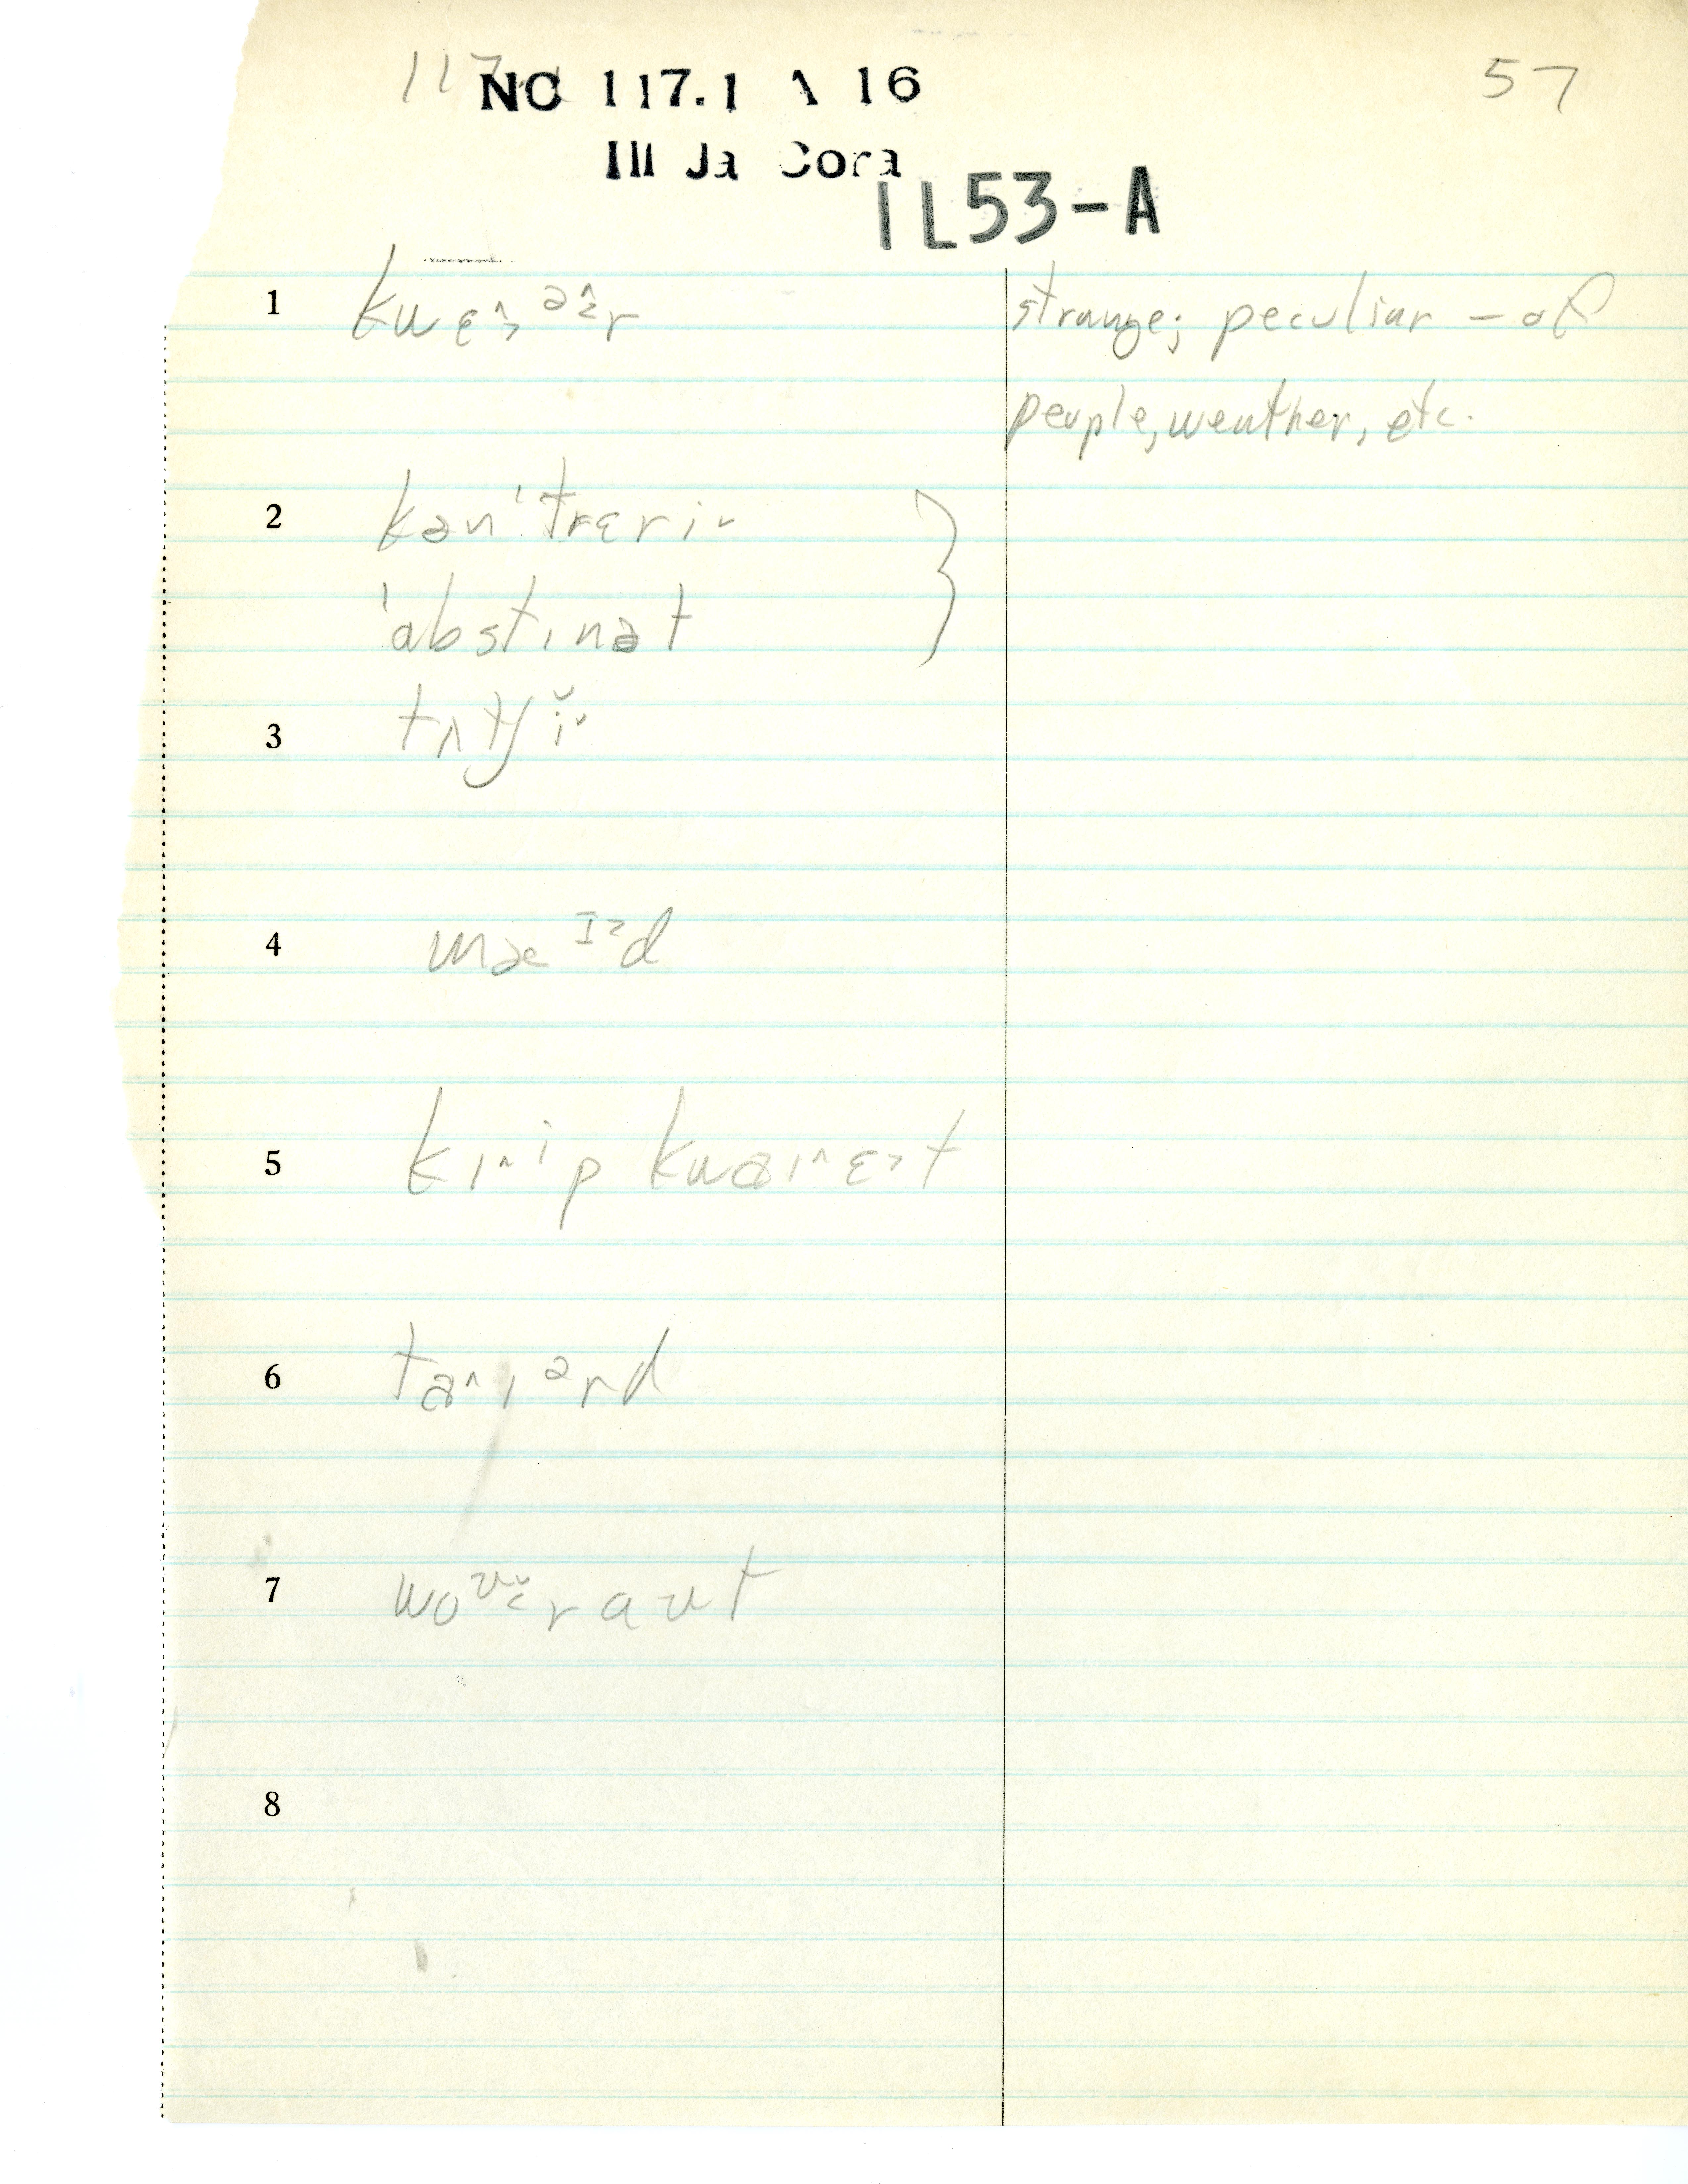 117
NC 117.1 A 16
57
Ill Ja Cora
1L53-A
1 kwɛ˄˃ ᵊɨ˄r strange; peculiar – of
people, weather, etc.
2 kən'trɛri˅
'abstɪnət
3 tʌtʃi˅
4 mæᴵ˃d
5 ki˄ip kwaɪ˄ɛ˃t
6 ta˄ɪᵊrd
7 woᶷɚraʊt
8